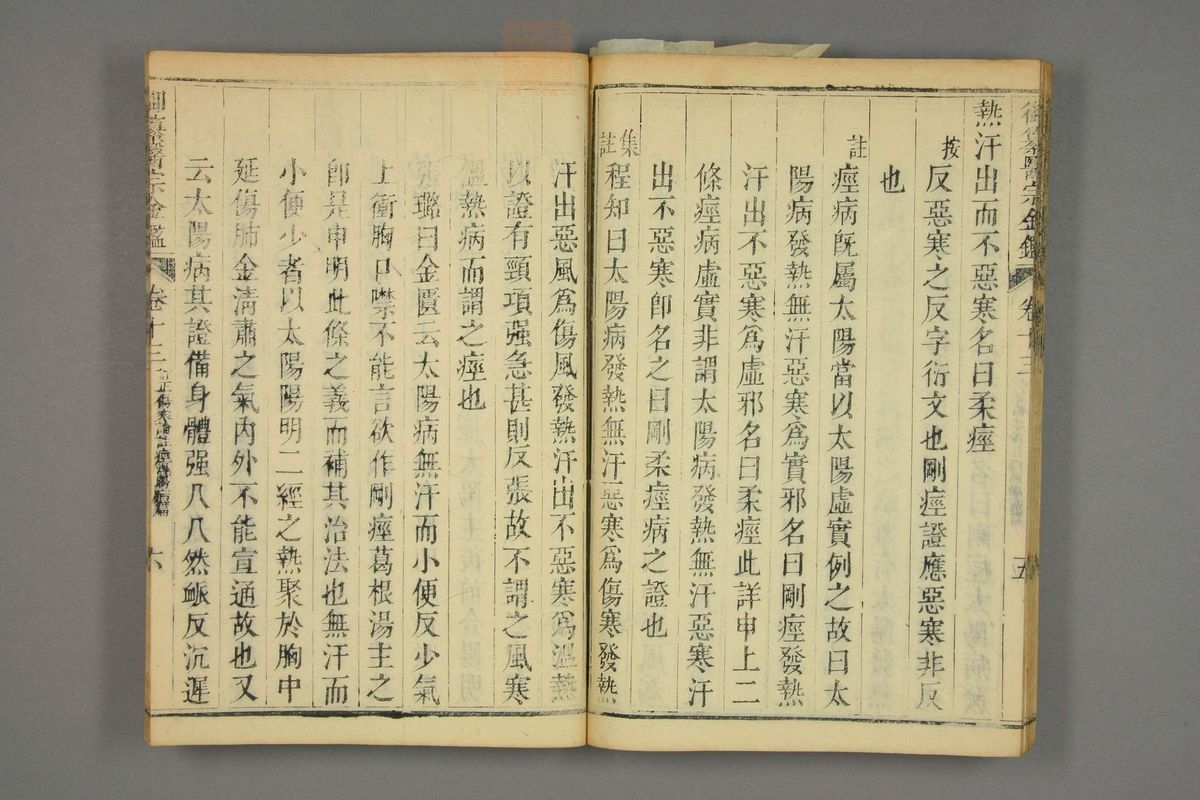 御纂醫宗金鑑 卷十三 五
熱汗出而不惡寒名曰柔痙
按 反惡寒之反字衍文也剛痙證應惡寒非反
也
註 痙病旣屬太陽當以太陽虛實例之故曰太
陽病發熱無汗惡寒爲實邪名曰剛痙發熱
汗出不惡寒爲虛邪名曰柔痙此詳申上二
條痙病虛實非謂太陽病發熱無汗惡寒汗
出不惡寒卽名之曰剛柔痙病之證也
集註 程知曰太陽病發熱無汗惡寒爲傷寒發熱
汗出惡風爲傷風發熱汗出不惡寒爲溫熱
以證有頸項强急甚則反張故不謂之風寒
溫熱病而謂之痙也
張璐曰金匱云太陽病無汗而小便反少氣
上衝胸口噤不能言欲作剛痙葛根湯主之
卽是申明此條之義而補其治法也無汗而
小便少者以太陽陽明二經之熱聚於胸中
延傷肺金淸肅之氣內外不能宣通故也又
云太陽病其證備身體强几几然脈反沉遲
卷十三 六